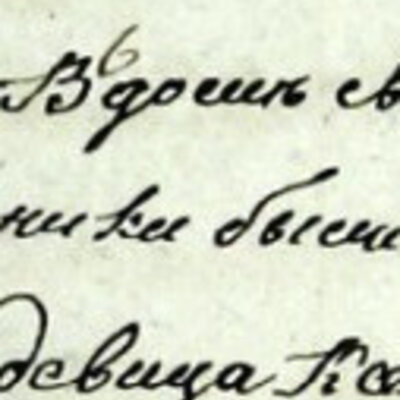 В домъ св
ники были
девица Ка